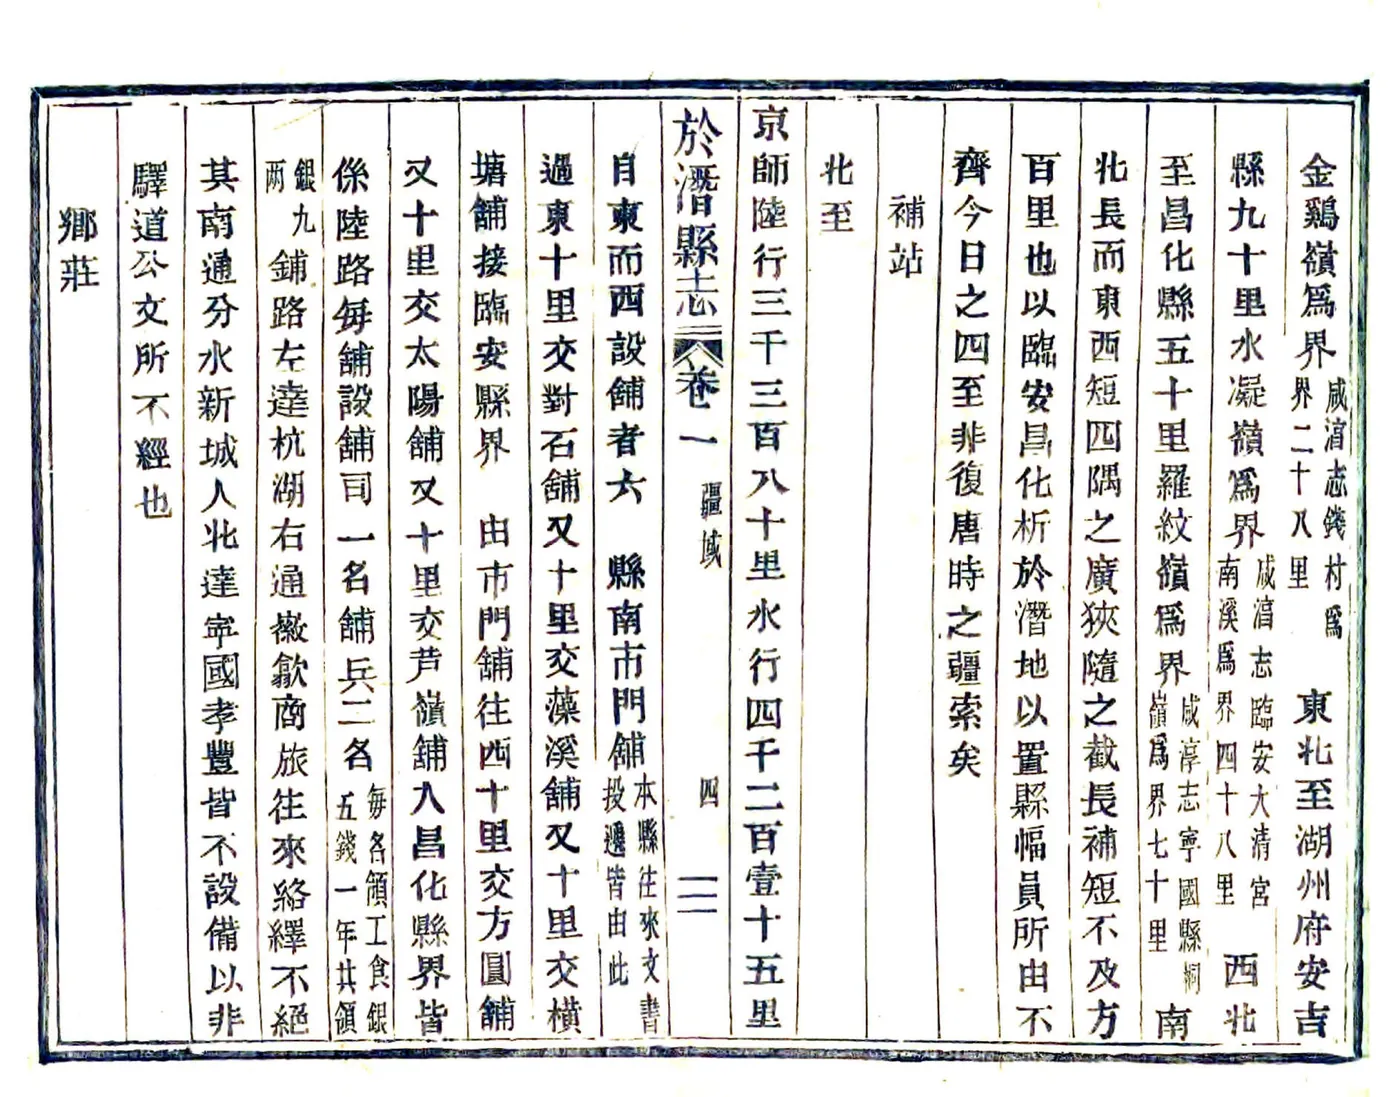 金鷄嶺爲界咸淳志錢村爲界二十八里 東北至湖州府安吉
縣九十里水凝嶺爲界咸淳志臨安大清宮南溪爲界四十八里 西北
至昌化縣五十里羅紋嶺爲界咸淳志寧國縣桐嶺爲界七十里 南
北長而東西短四隅之廣狹隨之截長補短不及方
百里也以臨安昌化析於潛地以置縣幅員所由不
齊今日之四至非復唐時之疆索矣
補站
北至
京師陸行三千三百八十里水行四千二百壹十五里
於潛縣志 卷一 疆域 四
自東而西設舖者六 縣南市門舖本縣往來文書投遞皆由此
過東十里交對石舖又十里交藻溪舖又十里交橫
塘舖接臨安縣界 由市門舖往西十里交方圓舖
又十里交太陽舖又十里交芦嶺舖入昌化縣界皆
係陸路每舖設舖司一名舖兵二名每名領工食銀五錢一年共領
銀九兩鋪路左達杭湖右通徽歙商旅往來絡繹不絕
其南通分水新城人北達寧國孝豐皆不設備以非
驛道公文所不經也
鄉莊